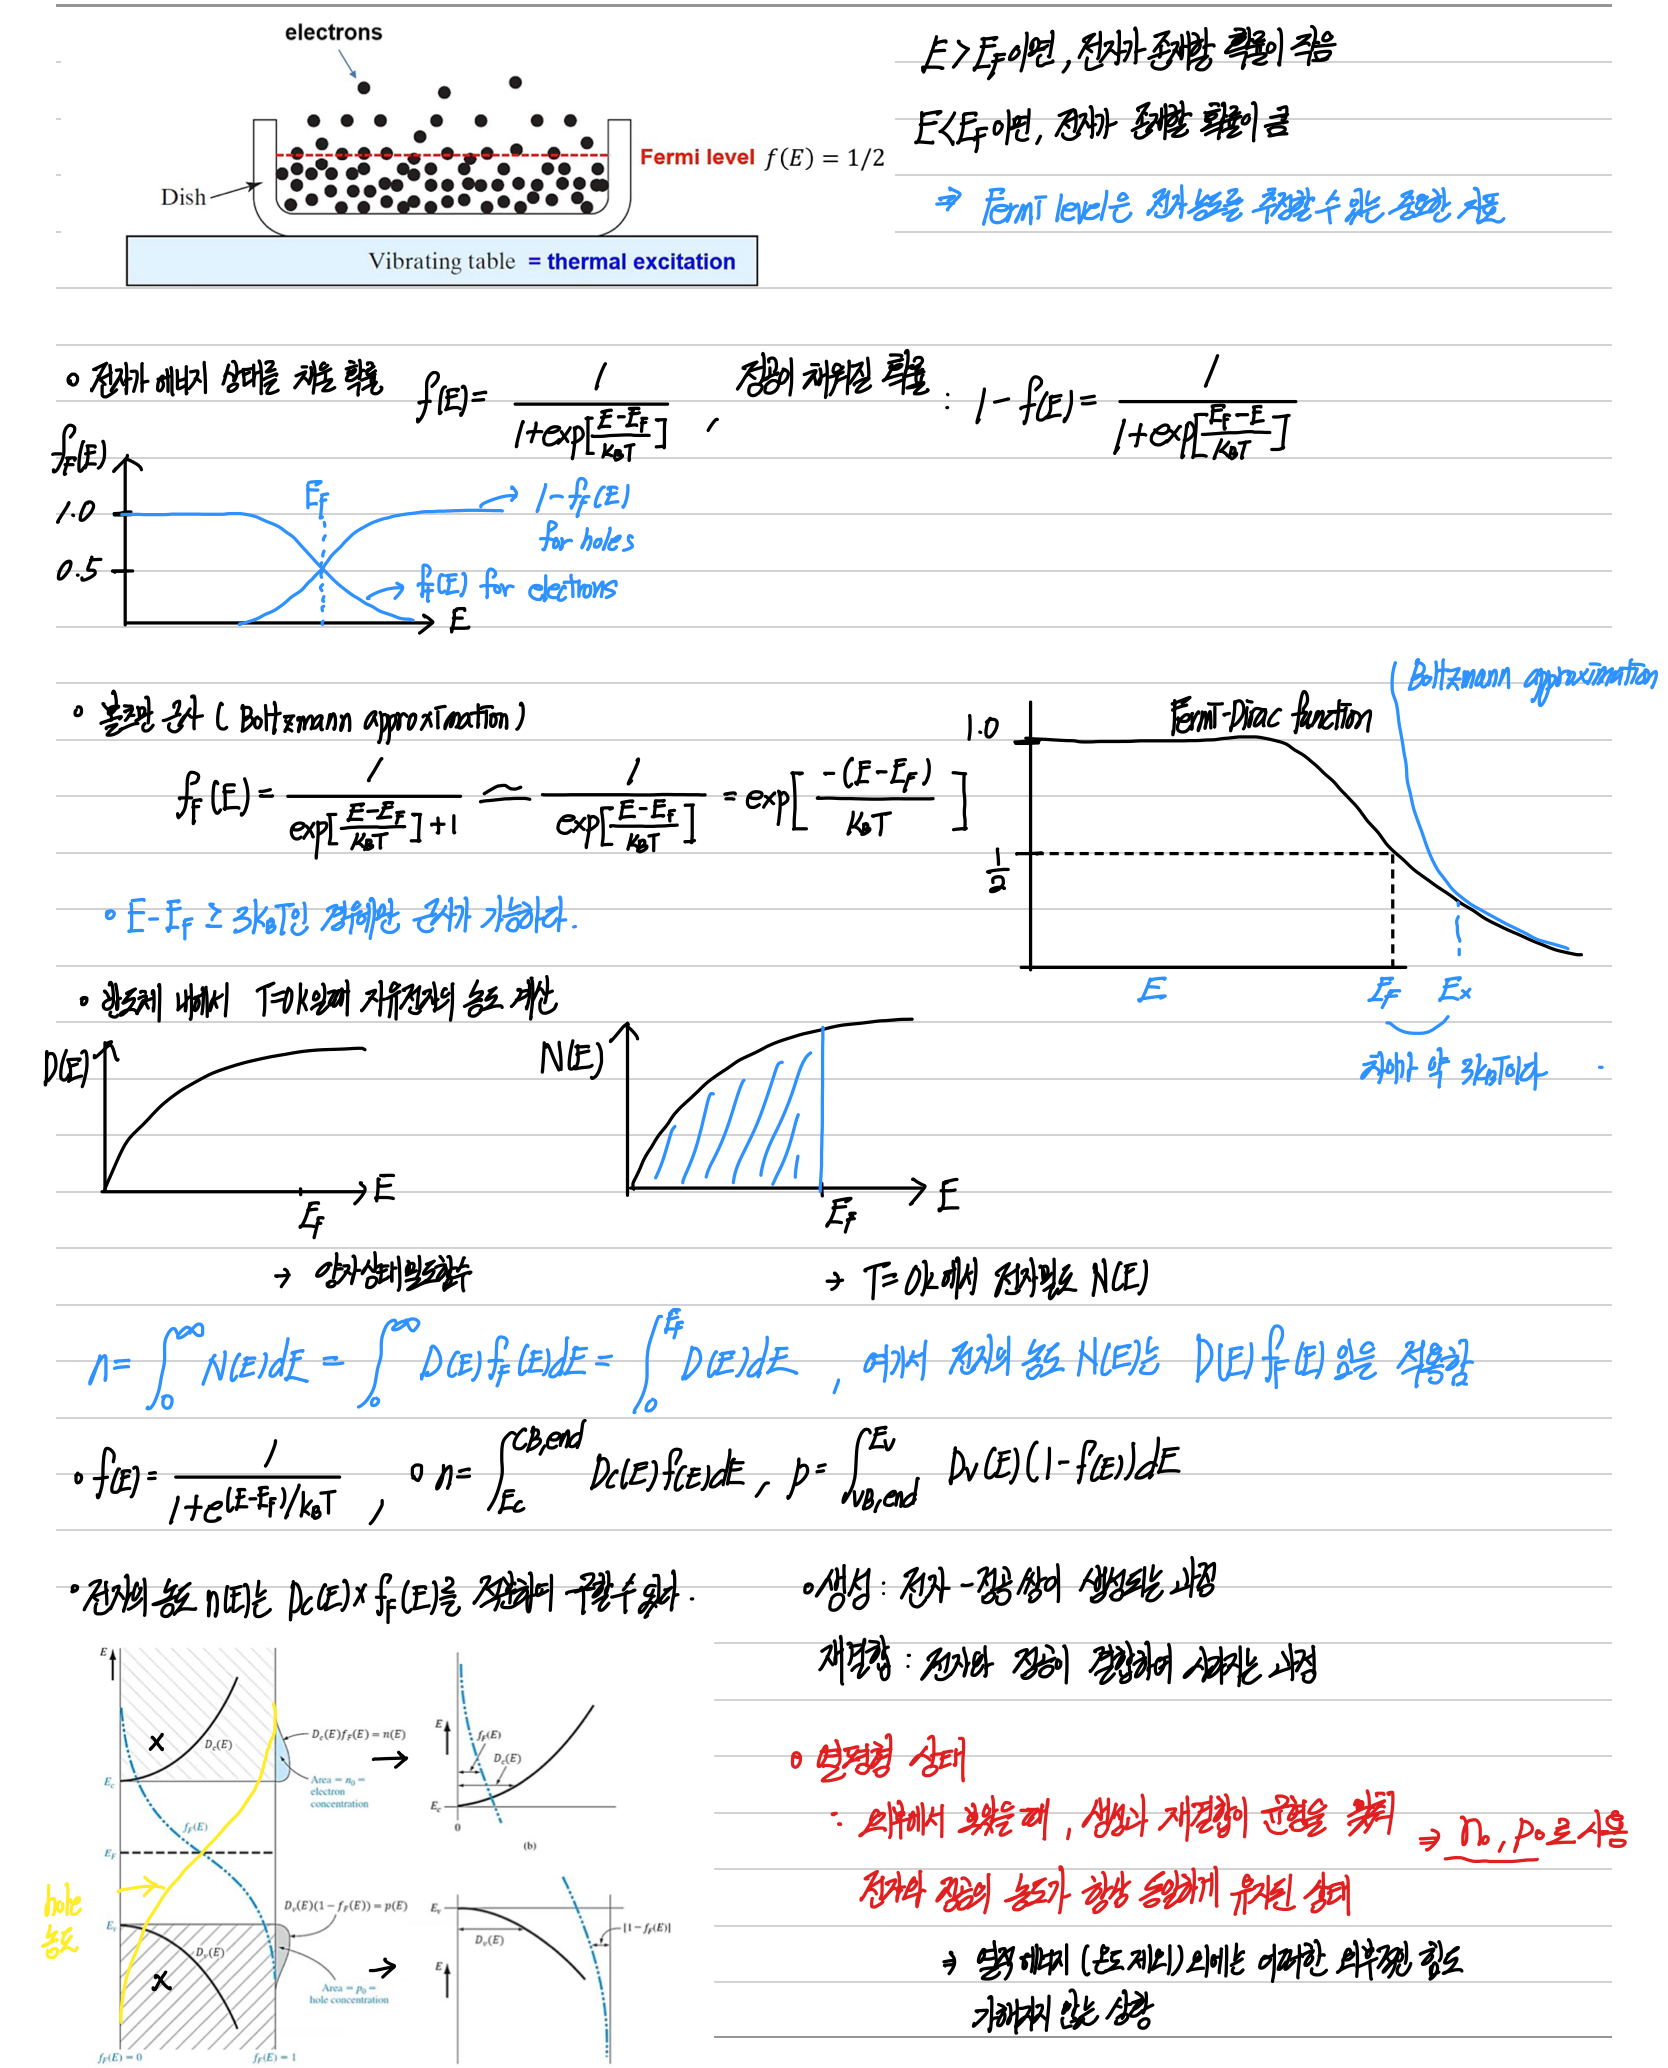 electrons
Fermi level f(E) = 1/2
Dish
Vibrating table = thermal excitation
E>E_F 이면, 전자가 존재할 확률이 적음
E<E_F 이면, 전자가 존재할 확률이 큼
⇒ Fermi level은 전자 농도를 추정할 수 있는 중요한 지표
∘ 전자가 에너지 상태를 채울 확률 f(E)= 1/(1+exp[(E-E_F)/(k_BT)]) , 정공이 채워질 확률 : 1-f(E)= 1/(1+exp[(E_F-E)/(k_BT)])
f_F(E)
1.0
0.5
E_F
→ 1-f_F(E)
for holes
→ f_F(E) for electrons
E
∘ 볼츠만 근사 ( Boltzmann approximation)
f_F(E)= 1/(exp[(E-E_F)/(k_BT)]+1) ≃ 1/(exp[(E-E_F)/(k_BT)]) = exp[-(E-E_F)/(k_BT)]
∘ E-E_F ≥ 3k_BT인 경우에만 근사가 가능하다.
Boltzmann approximation
Fermi-Dirac function
1.0
1/2
E
E_F
E_x
차이가 약 3k_BT이다
∘ 반도체 내에서 T=0k일때 자유전자의 농도 계산
D(E)
E
E_F
→ 양자상태밀도함수
N(E)
E
E_F
→ T=0k에서 전자밀도 N(E)
n= ∫_0^∞ N(E)dE = ∫_0^∞ D(E)f_F(E)dE = ∫_0^{E_F} D(E)dE , 여기서 전자의 농도 N(E)는 D(E)f_F(E) 임을 적용함
∘ f(E)= 1/(1+e^{(E-E_F)/k_BT}) , ∘ n= ∫_{E_C}^{CB,end} D_C(E)f(E)dE, p= ∫_{VB,end}^{E_V} D_V(E)(1-f(E))dE
∘ 전자의 농도 n(E)는 D_C(E)×f_F(E)를 적분하여 구할 수 있다.
E
x
D_c(E)
E_c
D_c(E)f_F(E) = n(E)
Area = n_0 =
electron
concentration
f_F(E)
E_F
hole
농도
E_v
D_v(E)
x
D_v(E)(1 − f_F(E)) = p(E)
Area = p_0 =
hole concentration
f_F(E) = 0
f_F(E) = 1
E
f_F(E)
D_c(E)
E_c
0
(b)
E_v
D_v(E)
[1 − f_F(E)]
E
∘ 생성 : 전자 - 정공 쌍이 생성되는 과정
재결합 : 전자와 정공이 결합하여 사라지는 과정
∘ 열평형 상태
: 외부에서 보았을 때, 생성과 재결합이 균형을 맞춰 ⇒ n_0, p_0로 사용
전자와 정공의 농도가 항상 동일하게 유지된 상태
⇒ 열적 에너지 (온도 제외) 외에는 어떠한 외부적인 힘도
가해지지 않는 상황